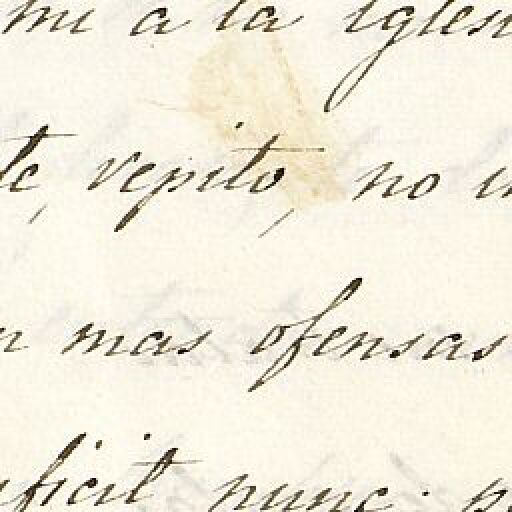 mi a la igles
te, vepito, no in
n mas ofensas
ficit nunc. p